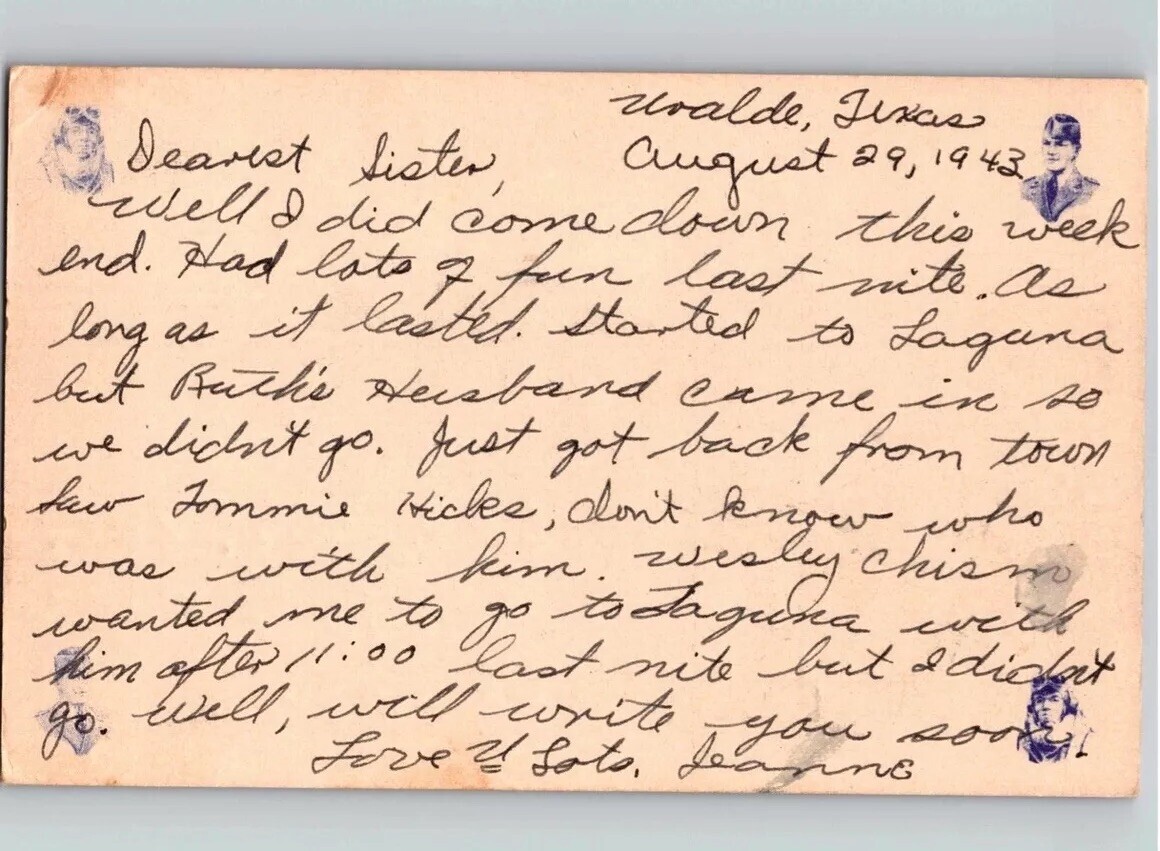 Uvalde, Texas
August 29, 1943.
Dearest Sister,
Well I did come down this week
end. Had lots of fun last nite. As
long as it lasted. Started to Laguna
but Ruth's Husband came in so
we didn't go. Just got back from town
Saw Tommie Hicks, don't know who
was with him. Wesley Chism
wanted me to go to Laguna with
him after 11:00 last nite but I didn't
go. Well, will write you soon.
Love U Lots, Jeanne